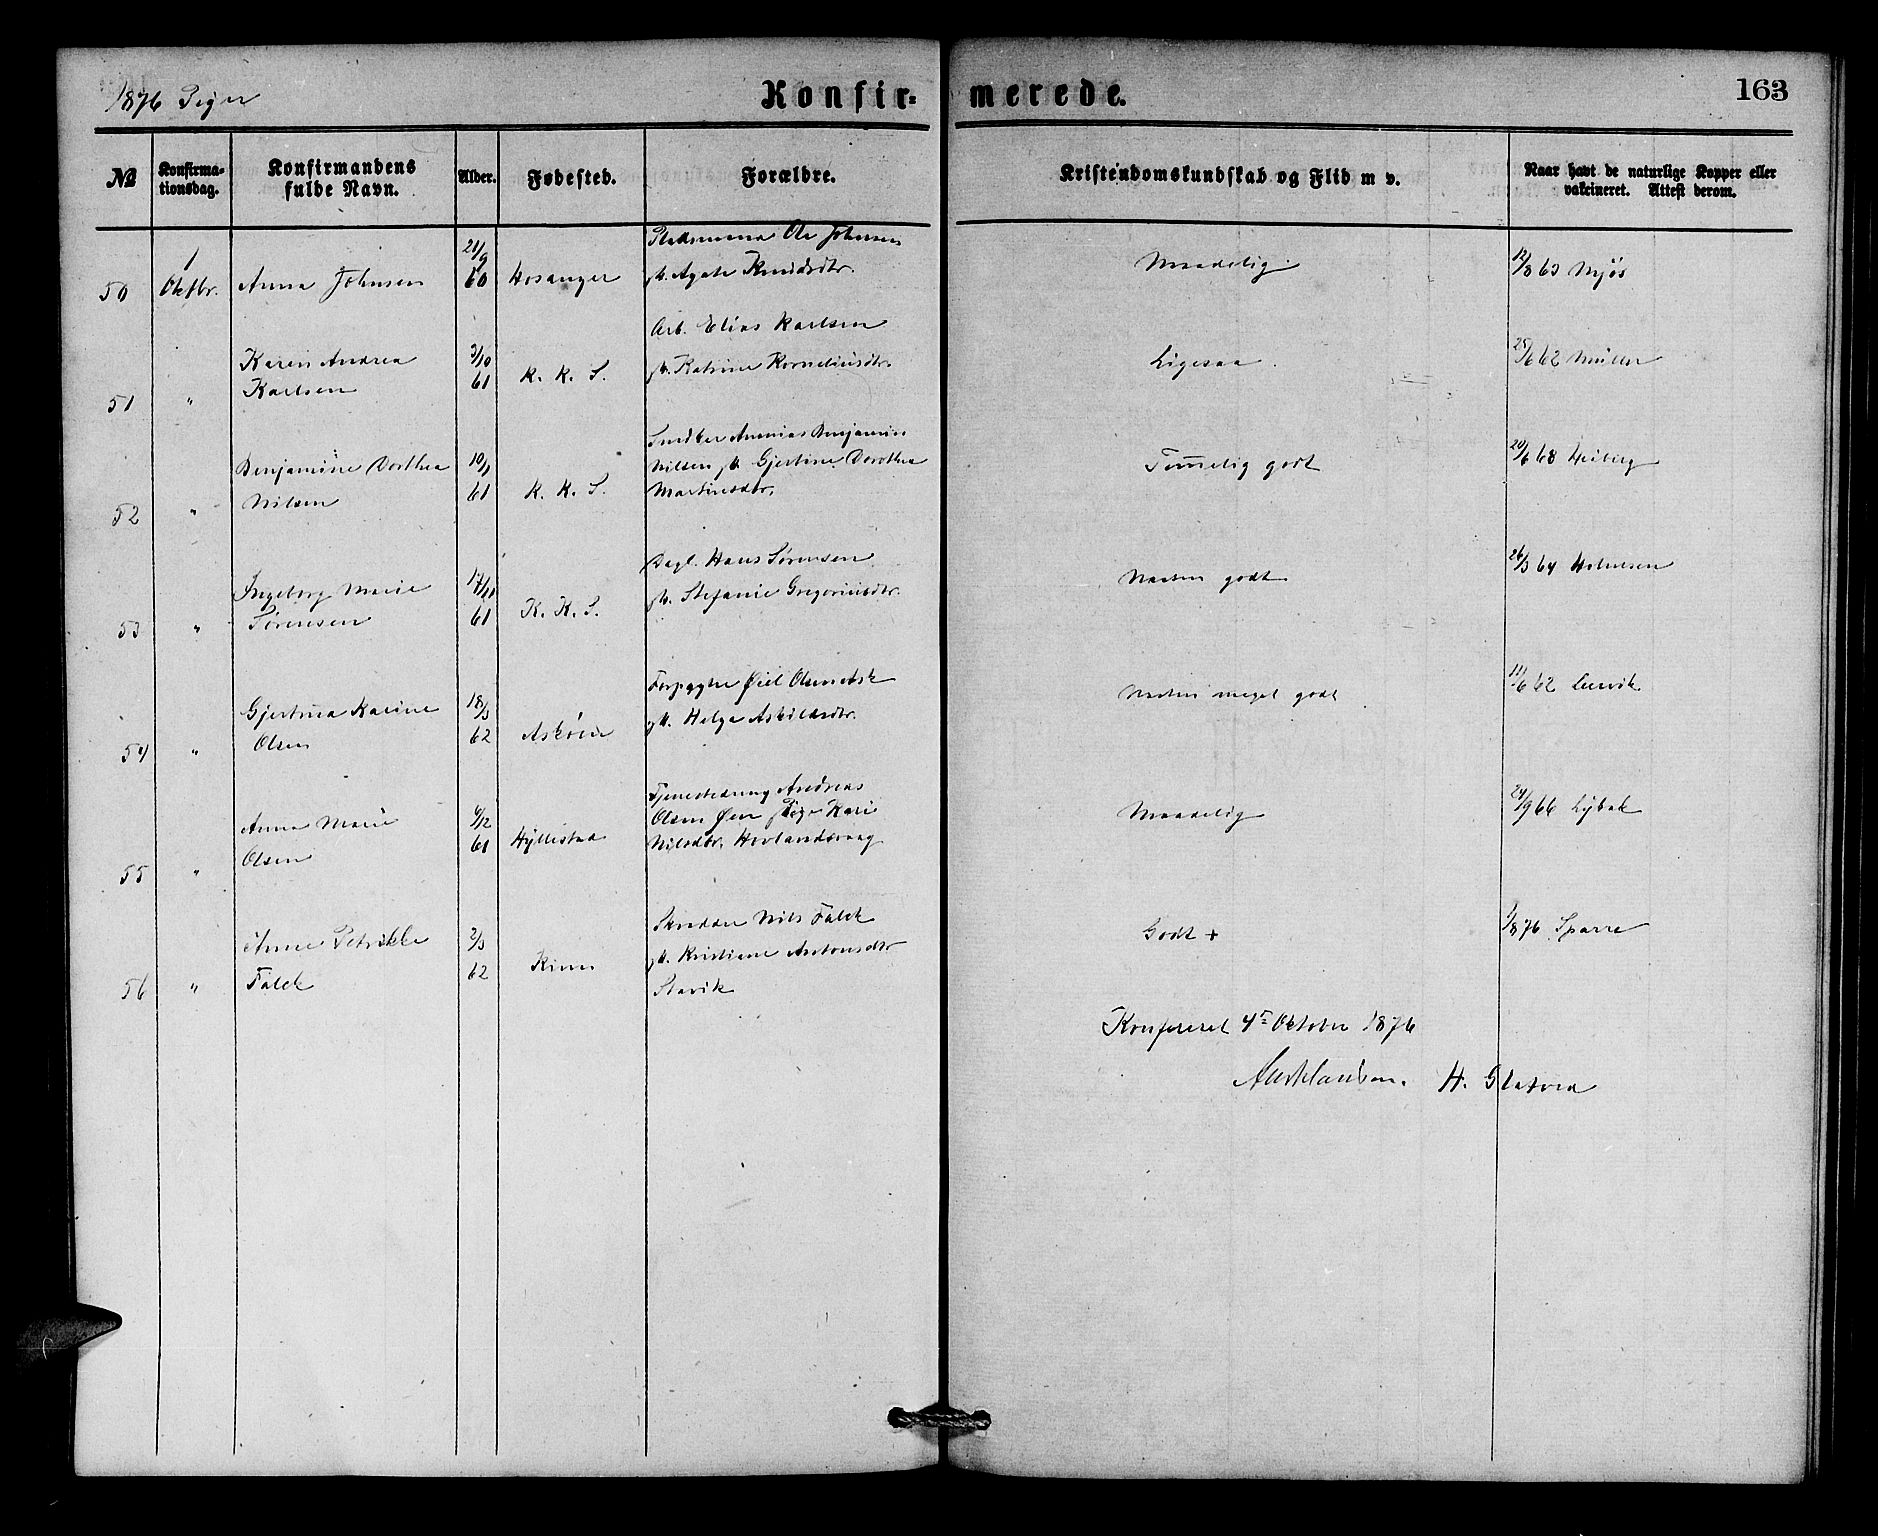 1876 Piger
Konfirmerede.
163
No
Konfirmationsdag.
Konfirmandens fulde Navn.
Alder.
Fødested.
Forældre.
Kristendomskundskab og Flid m v.
Naar havt de naturlige Kopper eller vakcineret. Attest derom.
50 1 Oktbr. Anna Johnsen 21/9 60 Hosanger
Ole Johnsen
Agate Knudsdtr.
Maadelig
12/8 63 Mjøs
51 " Karen Andrea
Karlsen
3/10 61 K. K. S.
Arb. Elias Karlsen
Katrine Korneliusdtr.
Ligesaa
25/6 62 Müller
52 " Benjamine Dorthea
Nilsen
10/1 61 K. K. S.
Ananias Benjamin
Nilsen Gjertine Dorothea
Martinsdtr.
Temmelig godt
20/6 68 Heiberg
53 " Ingeborg Marie
Sørensen
17/11 61 K. K. S.
Dagl. Hans Sørensen
Stefanie Gregoriusdtr.
Næsten godt
26/3 64 Holmsen
54 " Gjertina Karine
Olsen
18/3 62 Askøen
Forpagter Olsen Ask
Helga Askildsdtr.
Næsten meget godt
11/6 62 Leervik
55 " Anna Marie
Olsen
4/12 61 Hyllestad
Tjenestedreng Andreas
Olsen Øen Pige Kari
Nilsdtr. Hovlandsvaag
Maadelig
24/9 66 Lybæk
56 " Anne Petrikke
Falck
2/3 62 Kinn
Skredder Nils Falck
Kristiane Antonsdtr
Stavik
Godt +
1/8 76 Sparre
Konfereret 4de Oktober 1876
H. Slatved